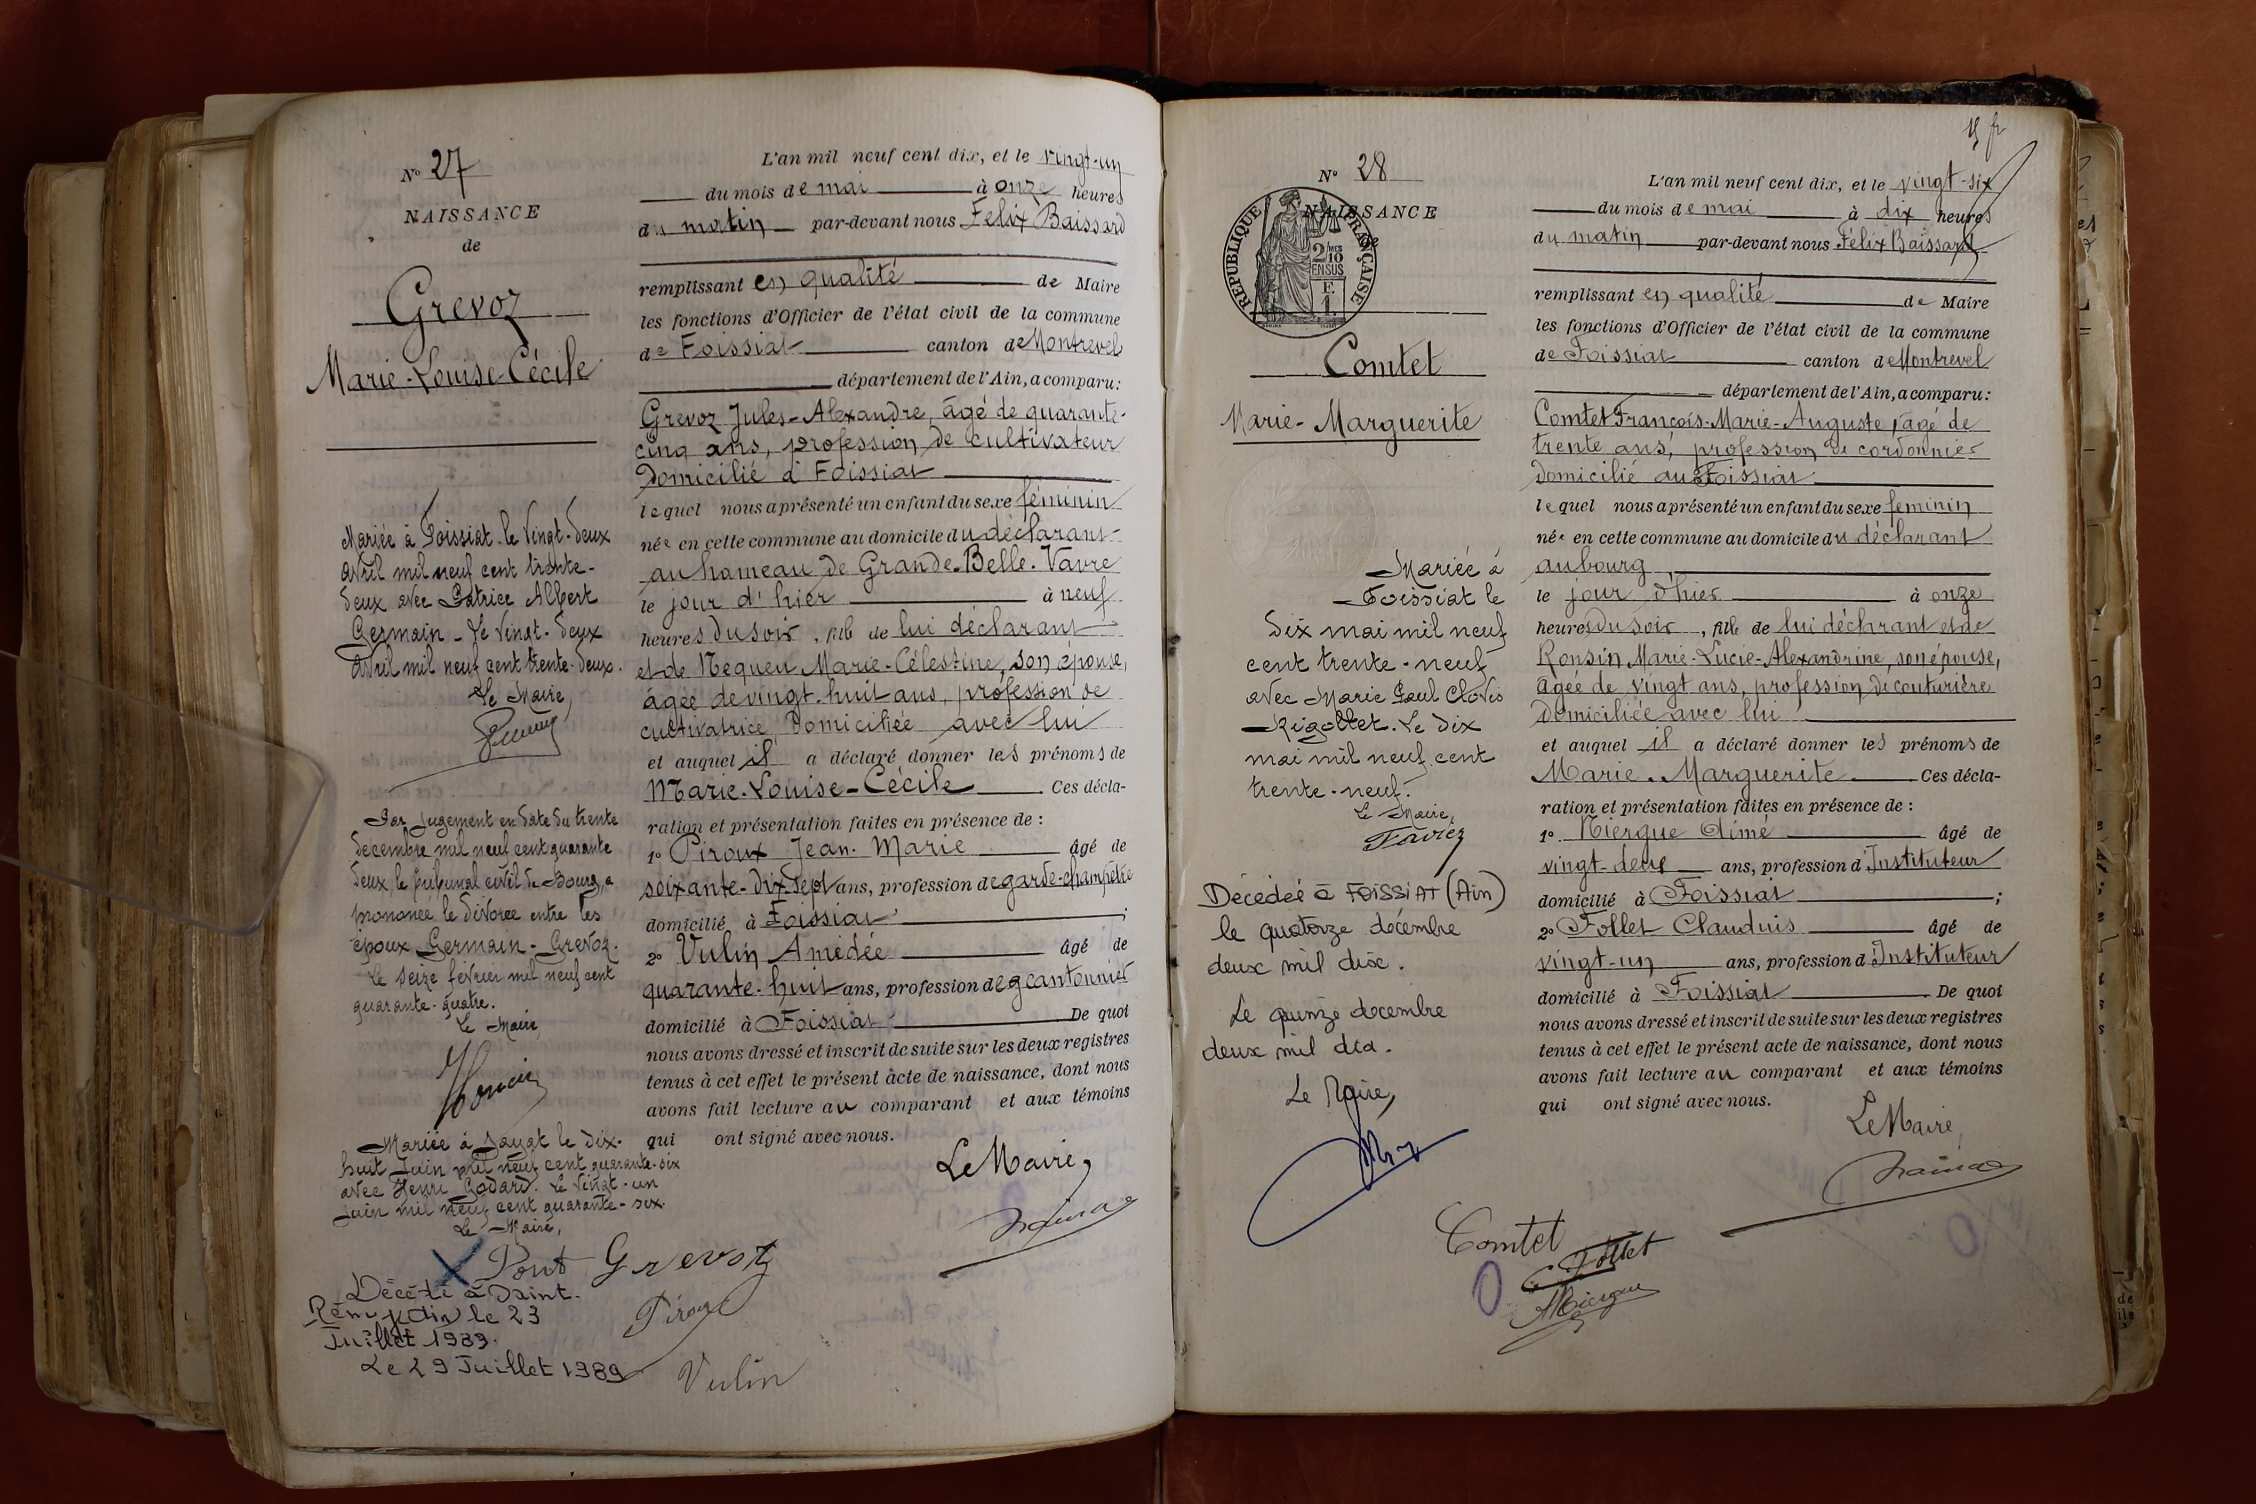 N° 27
NAISSANCE
de
Grevoz
Marie-Louise-Cécile
Mariée à Foissiat le vingt-deux
avril mil neuf cent trente-
deux avec Patrice Albert
Germain - Le vingt-deux
avril mil neuf cent trente-deux.
Le Maire,
Par jugement en date du trente
décembre mil neuf cent quarante
deux, le tribunal civil de Bourg, a
prononcé le divorce entre les
époux Germain - Grevoz.
Le seize février mil neuf cent
quarante-quatre.
Le Maire,
Mariée à Jayat le dix-
huit Juin mil neuf cent quarante-six
avec Henri Godard. Le vingt-un
juin mil neuf cent quarante-six.
Le Maire,
Décédé à Saint.
Rémy (Ain) le 23
Juillet 1989.
Le 29 Juillet 1989
L'an mil neuf cent dix, et le vingt-un
du mois de mai à onze heures
du matin par-devant nous Félix Baissard
remplissant en qualité de Maire
les fonctions d'Officier de l'état civil de la commune
de Foissiat canton de Montrevel
département de l'Ain, a comparu:
Grevoz Jules-Alexandre, âgé de quarante-
cinq ans, profession de cultivateur
domicilié à Foissiat
lequel nous a présenté un enfant du sexe féminin
née en cette commune au domicile du déclarant
au hameau de Grande-Belle-Vavre
le jour d'hier à neuf
heures du soir, fille de lui déclarant
et de Nequeu Marie-Célestine, son épouse,
âgée de vingt-huit ans, profession de
cultivatrice domiciliée avec lui
et auquel il a déclaré donner les prénoms de
Marie-Louise-Cécile Ces décla-
ration et présentation faites en présence de :
1° Piroux Jean-Marie âgé de
soixante-dix-sept ans, profession de garde-champêtre
domicilié à Foissiat ;
2° Vulin Amédée âgé de
quarante-huit ans, profession de cantonnier
domicilié à Foissiat De quoi
nous avons dressé et inscrit de suite sur les deux registres
tenus à cet effet le présent acte de naissance, dont nous
avons fait lecture au comparant et aux témoins
qui ont signé avec nous.
Le Maire,
Grevoz
Piroux
Vulin
N° 28
NAISSANCE
de
RÉPUBLIQUE FRANÇAISE
2/10 EN SUS
F. 1.
Comtet
Marie-Marguerite
Mariée à
Foissiat le
dix mai mil neuf
cent trente-neuf
avec Marie Paul Clovis
Rigollet. Le dix
mai mil neuf cent
trente-neuf.
Le Maire,
Favier
Décédée à FOISSIAT (Ain)
le quatorze décembre
deux mil dix.
Le quinze décembre
deux mil dix.
Le Maire,
15 fr
L'an mil neuf cent dix, et le vingt-six
du mois de mai à dix heures
du matin par-devant nous Félix Baissard
remplissant en qualité de Maire
les fonctions d'Officier de l'état civil de la commune
de Foissiat canton de Montrevel
département de l'Ain, a comparu:
Comtet François-Marie-Auguste, âgé de
trente ans, profession de cordonnier
domicilié au Foissiat
lequel nous a présenté un enfant du sexe féminin
née en cette commune au domicile du déclarant
au bourg
le jour d'hier à onze
heures du soir, fille de lui déclarant et de
Ronsin Marie-Lucie-Alexandrine, son épouse,
âgée de vingt ans, profession de couturière
domiciliée avec lui
et auquel il a déclaré donner les prénoms de
Marie-Marguerite Ces décla-
ration et présentation faites en présence de :
1° Niergue Aimé âgé de
vingt-deux ans, profession d'Instituteur
domicilié à Foissiat ;
2° Follet Claudius âgé de
vingt-un ans, profession d'Instituteur
domicilié à Foissiat De quoi
nous avons dressé et inscrit de suite sur les deux registres
tenus à cet effet le présent acte de naissance, dont nous
avons fait lecture au comparant et aux témoins
qui ont signé avec nous.
Le Maire,
Comtet
C. Follet